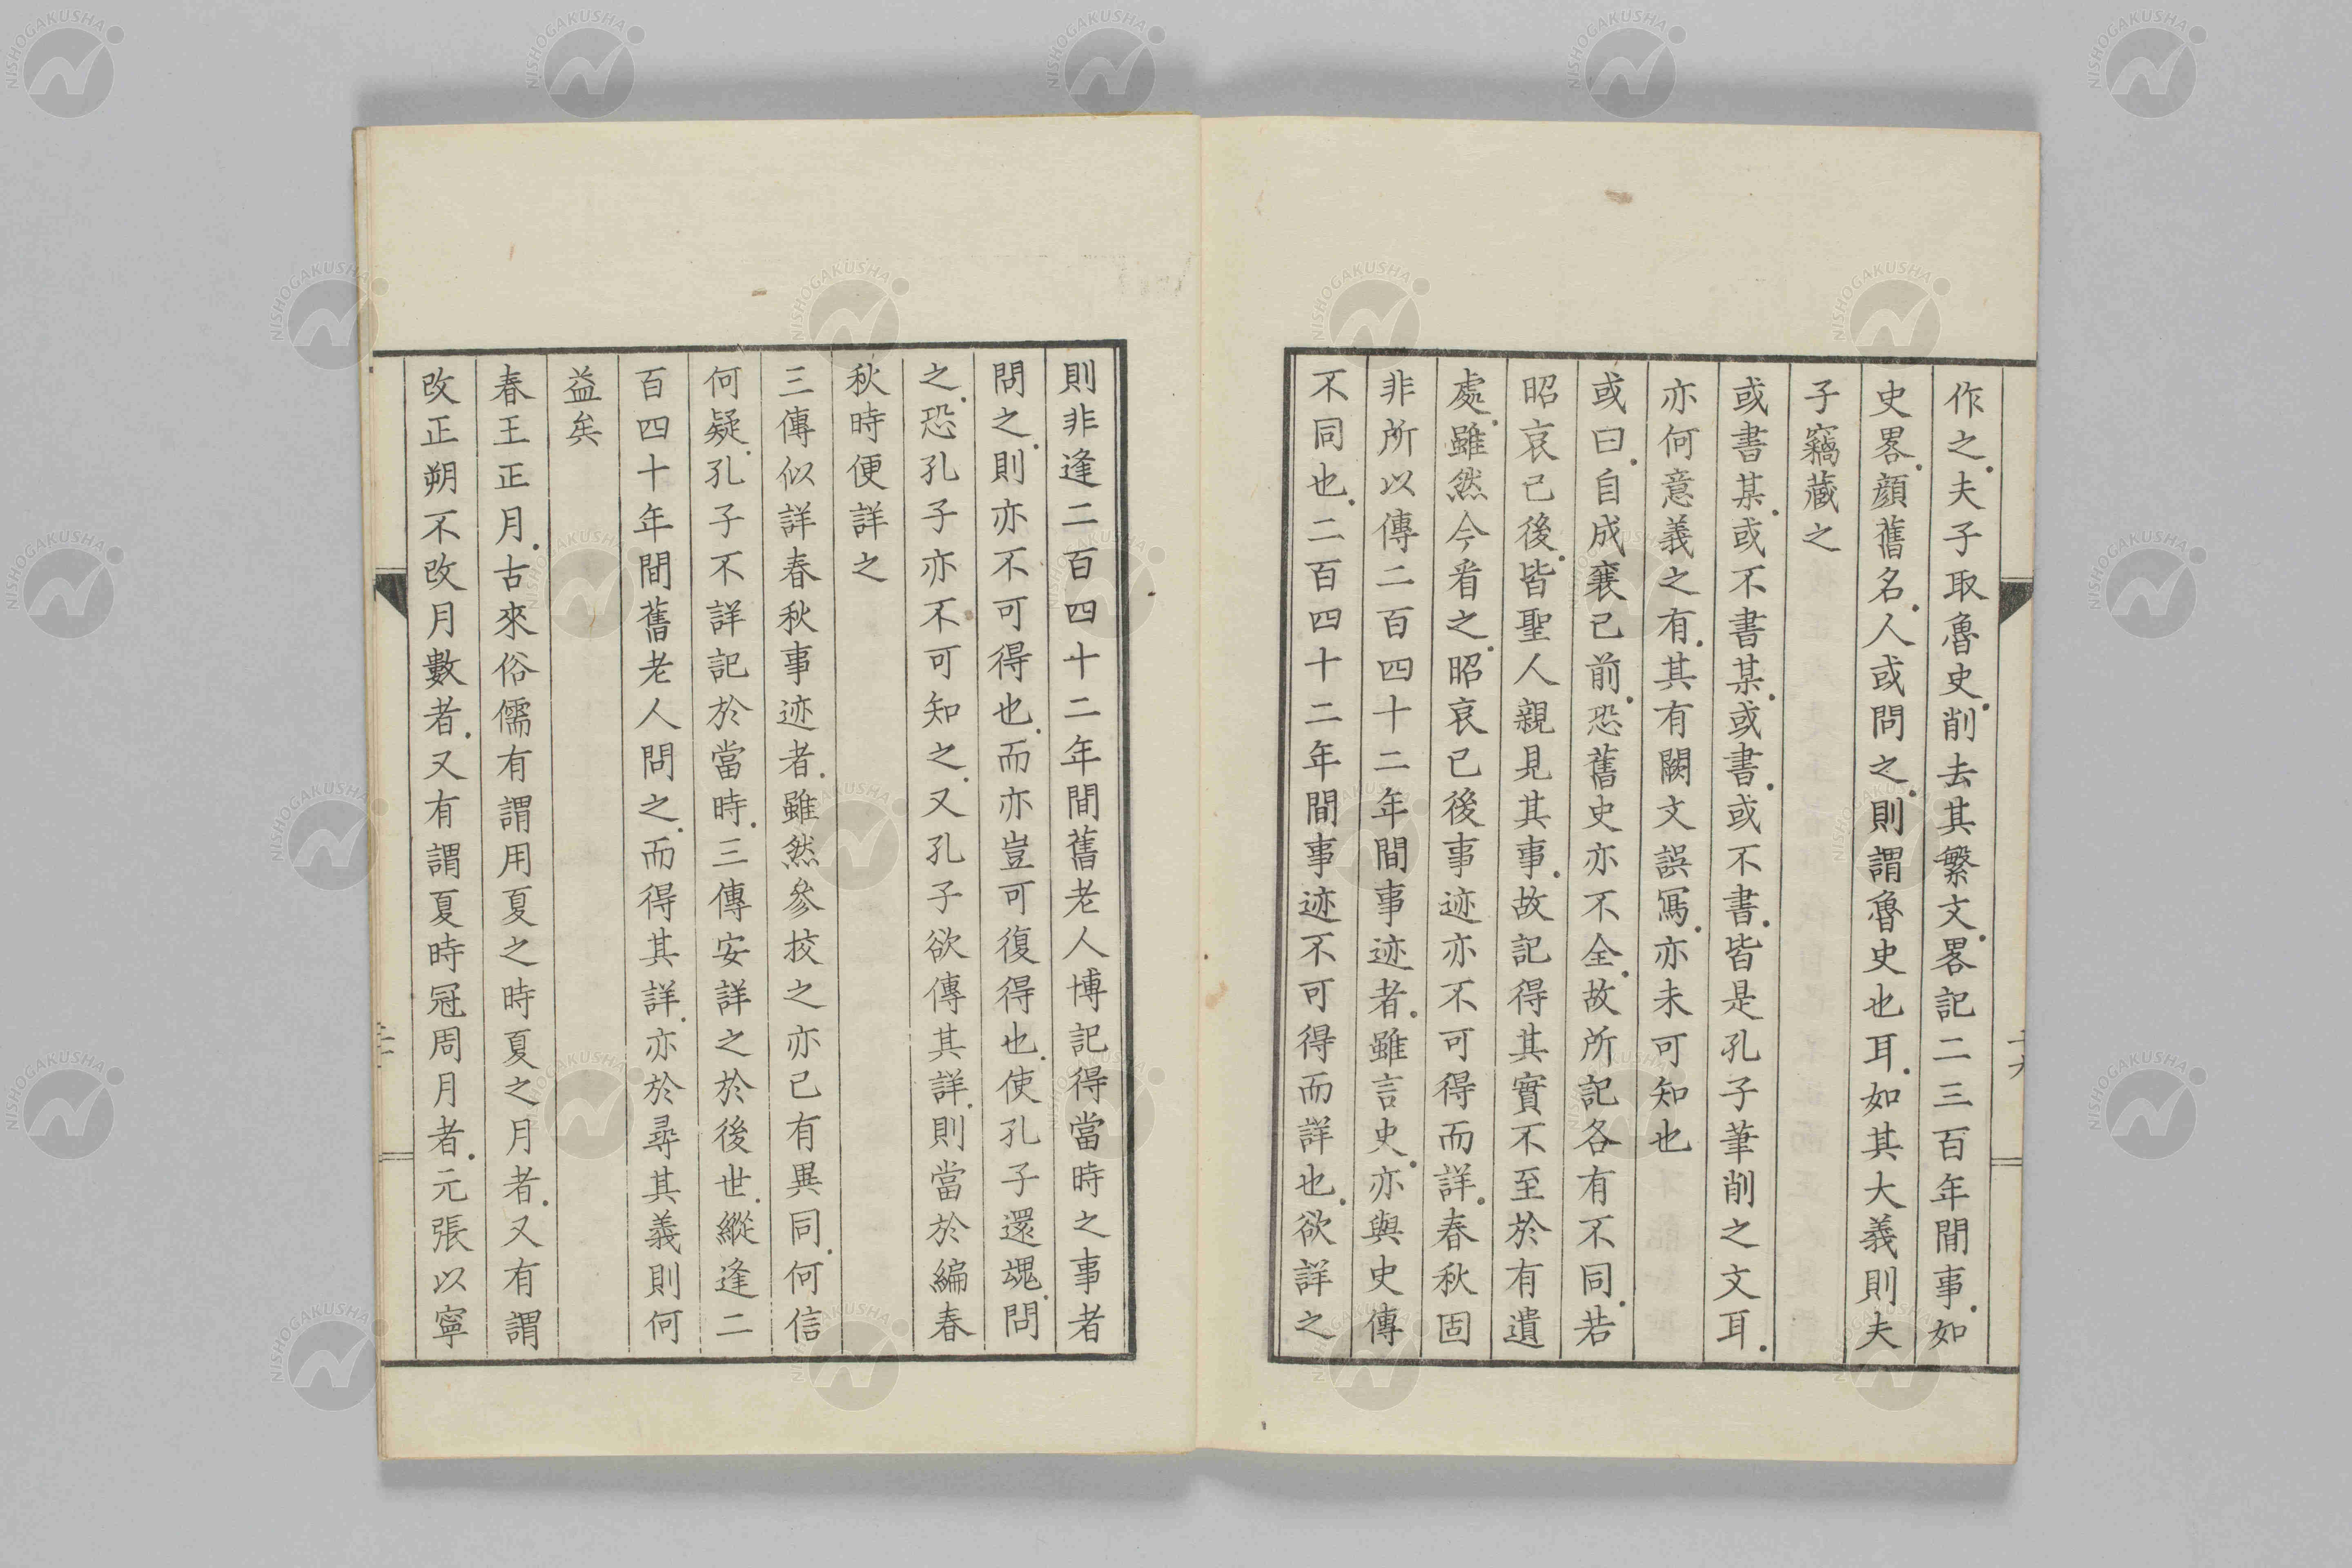 作之.夫子取魯史.削去其繁文.畧記二三百年間事.如
史畧.顔舊名.人或問之.則謂魯史也耳.如其大義則夫
子竊藏之
或書某.或不書某.或書.或不書.皆是孔子筆削之文耳.
亦何意義之有.其有闕文誤寫.亦未可知也
或曰.自成襄已前.恐舊史亦不全.故所記各有不同.若
昭哀已後.皆聖人親見其事.故記得其實不至於有遺
處.雖然今看之.昭哀已後事迹亦不可得而詳.春秋固
非所以傳二百四十二年間事迹者.雖言史.亦與史傳
不同也.二百四十二年間事迹不可得而詳也.欲詳之
則非逢二百四十二年間舊老人博記得當時之事者
問之.則亦不可得也.而亦豈可復得也.使孔子還魂.問
之.恐孔子亦不可知之.又孔子欲傳其詳.則當於編春
秋時便詳之
三傳似詳春秋事迹者.雖然參挍之亦已有異同.何信
何疑.孔子不詳記於當時.三傳安詳之於後世.縱逢二
百四十年間舊老人問之.而得其詳.亦於尋其義則何
益矣
春王正月.古來俗儒有謂用夏之時夏之月者.又有謂
改正朔不改月數者.又有謂夏時冠周月者.元張以寧
NISHOGAKUSHA